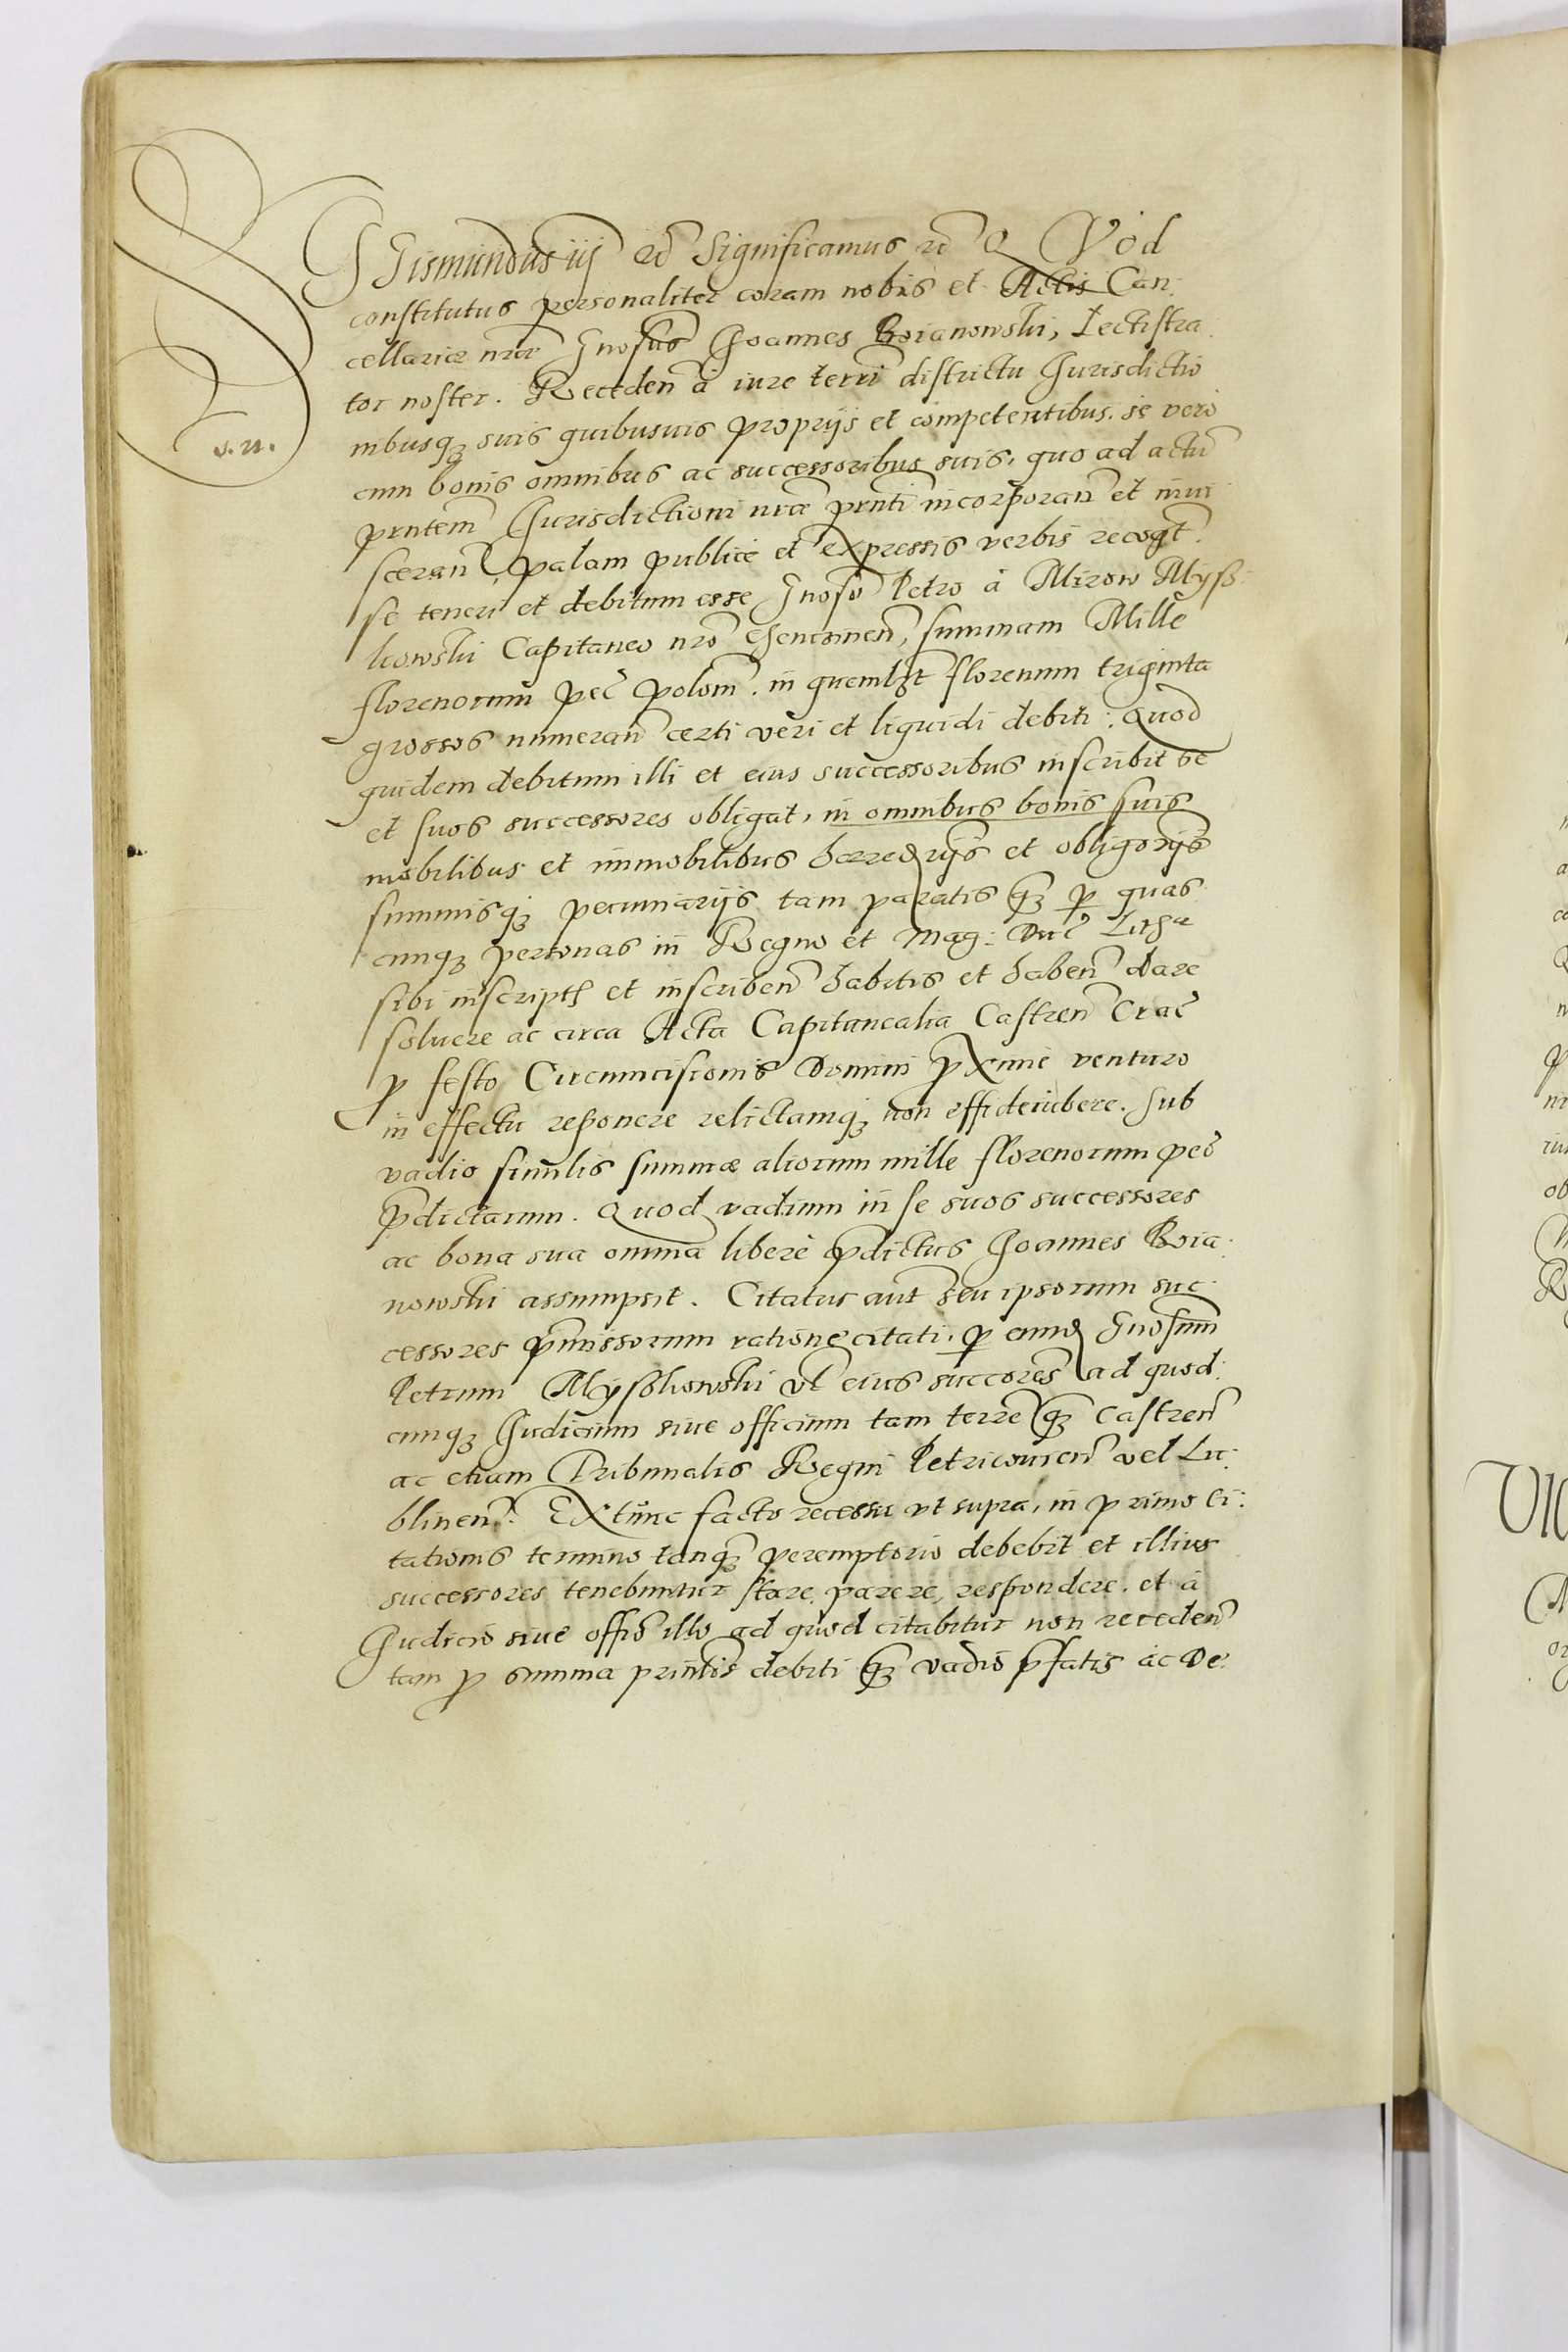 SIgismundus iij etc Significamus etc QVod
constitutus personaliter coram nobis et Actis Can:
cellariæ nræ Gnosus Joannes Boianowski, Lectistra:
tor noster. Receden à iure terri districtu Jurisdictio
nibusq suis quibusuis proprijs et competentibus. se vero
cum bonis omnibus ac successoribus suis, quo ad actu
prntem Jurisdictioni nræ prnti incorporan et inui
sceran, palam publicè et expressis verbis recogt.
se teneri et debitum esse Gnoso Petro à Mirow Mysz:
kowski Capitaneo nro Chencinen, summam Mille
florenorum pec polon. in quemlbt florenum triginta
grossos numeran certi veri et liquidi debiti. Quod
quidem debitum illi et eius successoribus inscribit se
et suos successores obligat, in omnibus bonis suis
mobilibus et immobilibus hærredrijs et obligorijs
summisq pecuniarijs tam paratis q p quas
cunq personas in Regno et Mag: Duc Lith
sibi inscript et inscriben habitis et haben dare
soluere ac circa Acta Capitanealia Castren Crac
p festo Circumcisionis Domini pxime venturo
in effectu reponere relictamq non effideiubere. Sub
vadio similis summæ aliorum mille florenorum pec
pdictarum. Quod vadium in se suos successores
ac bona sua omnia liberè pdictus Joannes Boia:
nowski assumpsit. Citatus aut seu ipsorum suc:
cessores pmissorum ratione citati, p eund Gnosum
Petrum Myszkowski vl eius succores ad quod:
cunq Judicium siue officium tam terre q Castren
ac etiam Tribunalis Regni Petricouien vel Lu:
blinen. Extunc facto recessu vt supra, in primo ci:
tationis termino tanq peremptorio debebit et illius
successores tenebuntur stare, parere, respondere. et à
Judicio siue offio illo ad quod citabitur non receden
tam p summa prinlis debiti q vadio pfatis ac De: